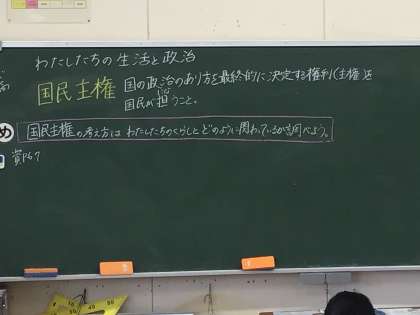 わたしたちの生活と政治
国民主権 国の政治のあり方を最終的に決定する権利(主権)を
国民が担うこと。
め 国民主権の考え方は わたしたちのくらしと どのように関わっているか調べよう。
資P67